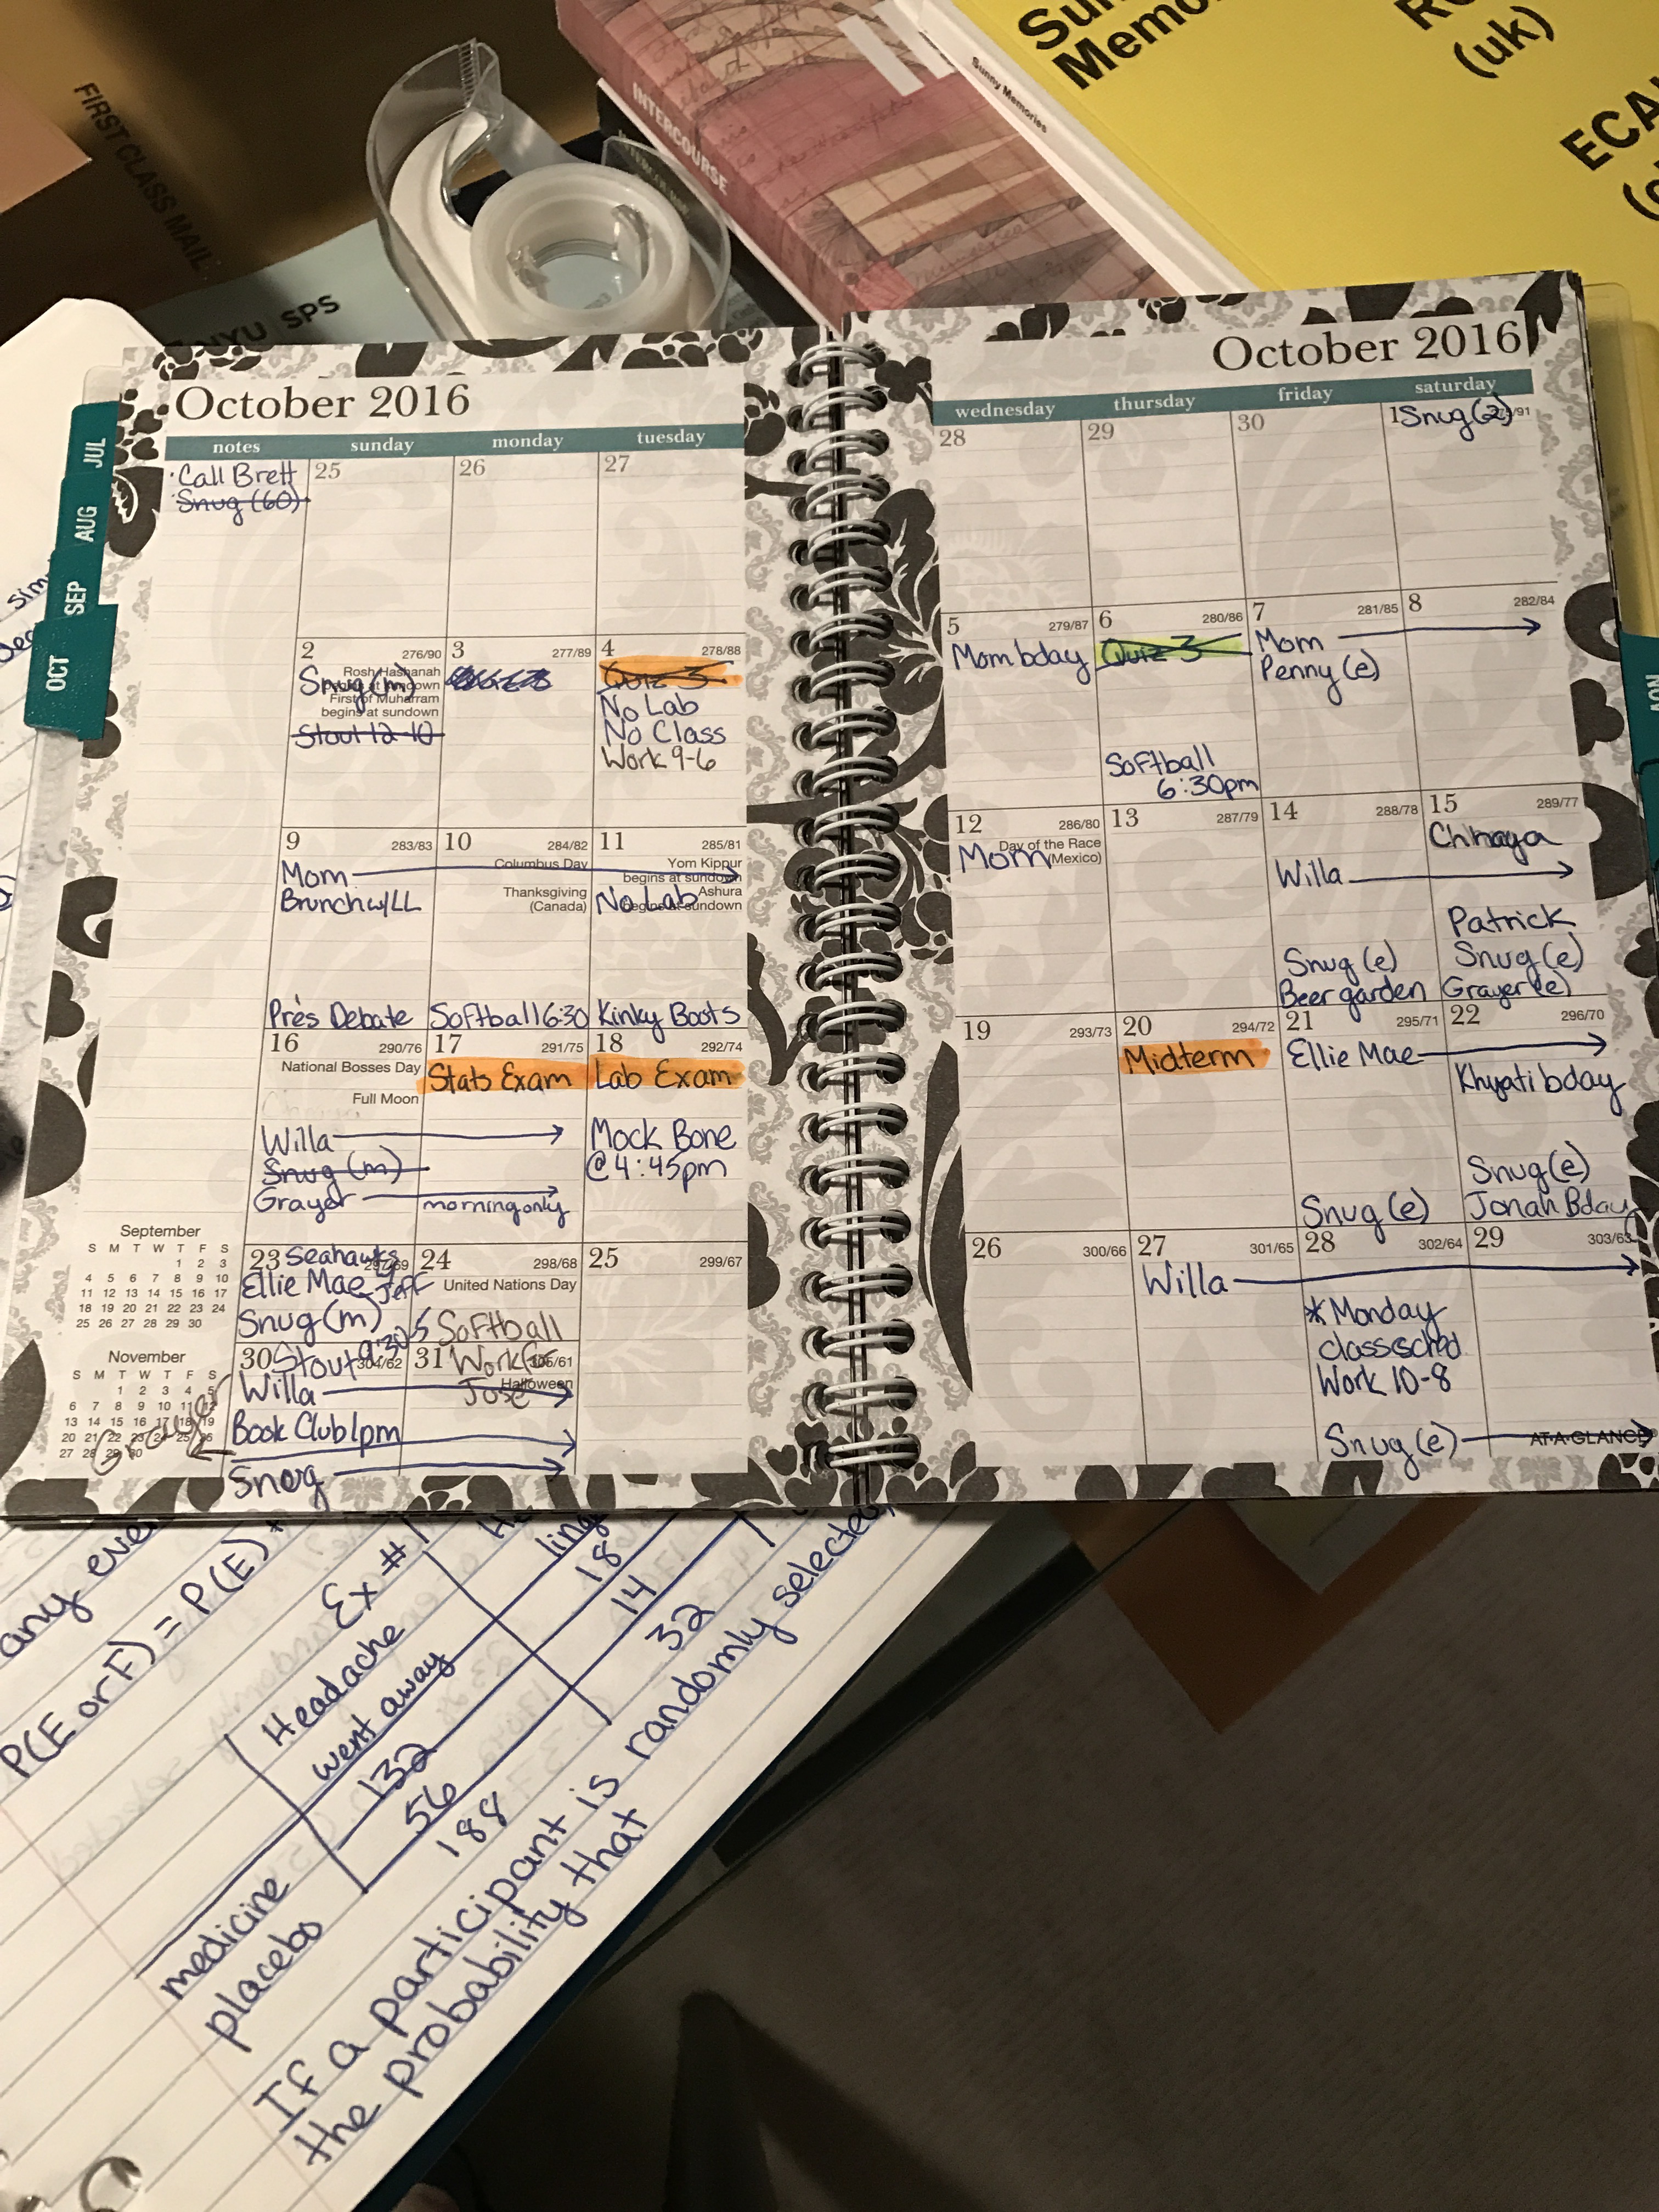 FIRST CLASS MAIL
NYU SPS
INTERCOURSE
Sunny Memories
(uk)
JUL
AUG
SEP
OCT
October 2016
notes
sunday
monday
tuesday
· Call Brett
· Snug (60)
25
26
27
2
276/90
Rosh Hashanah
begins at sundown
First of Muharram
begins at sundown
Snug (m)
Stout 12-10
3
277/89
4
278/88
Quiz 3
No Lab
No Class
Work 9-6
9
283/83
Mom
Brunch w/LL
Pres Debate
10
284/82
Columbus Day
Thanksgiving
(Canada)
Softball 6:30
11
285/81
Yom Kippur
begins at sundown
Ashura
begins at sundown
No Lab
Kinky Boots
16
290/76
National Bosses Day
Full Moon
Willa
Snug (m)
Grayer
17
291/75
Stats Exam
morning only
18
292/74
Lab Exam
Mock Bone
@ 4:45pm
23
Seahawks
Ellie Mae
Jeff
Snug (m)
24
298/68
United Nations Day
Softball
25
299/67
30
304/62
Stout 9:30-5
Willa
Book Club 1pm
Snug
Grayer
31
305/61
Halloween
Work for
Jose
September
S M T W T F S
1 2 3
4 5 6 7 8 9 10
11 12 13 14 15 16 17
18 19 20 21 22 23 24
25 26 27 28 29 30
November
S M T W T F S
1 2 3 4 5
6 7 8 9 10 11 12
13 14 15 16 17 18 19
20 21 22 23 24 25 26
27 28 29 30
October 2016
wednesday
thursday
friday
saturday
28
29
30
1
Snug (2)
5
279/87
Mom bday
6
280/86
Quiz 3
Softball
6:30pm
7
281/85
Mom
Penny (e)
8
282/84
12
286/80
Day of the Race
(Mexico)
Mom
13
287/79
14
288/78
Willa
Snug (e)
Beer garden
15
289/77
Chhaya
Patrick
Snug (e)
Grayer (e)
19
293/73
20
294/72
Midterm
21
295/71
Ellie Mae
Snug (e)
22
296/70
Khyati bday
Snug (e)
Jonah Bday
26
300/66
27
301/65
Willa
28
302/64
* Monday
class sched
Work 10-8
Snug (e)
29
303/63
AT-A-GLANCE
any
P(E or F) = P(E) +
Ex #1
Headache
went away
medicine 132 18
placebo 56 14
188 32
If a participant is randomly selected,
the probability that